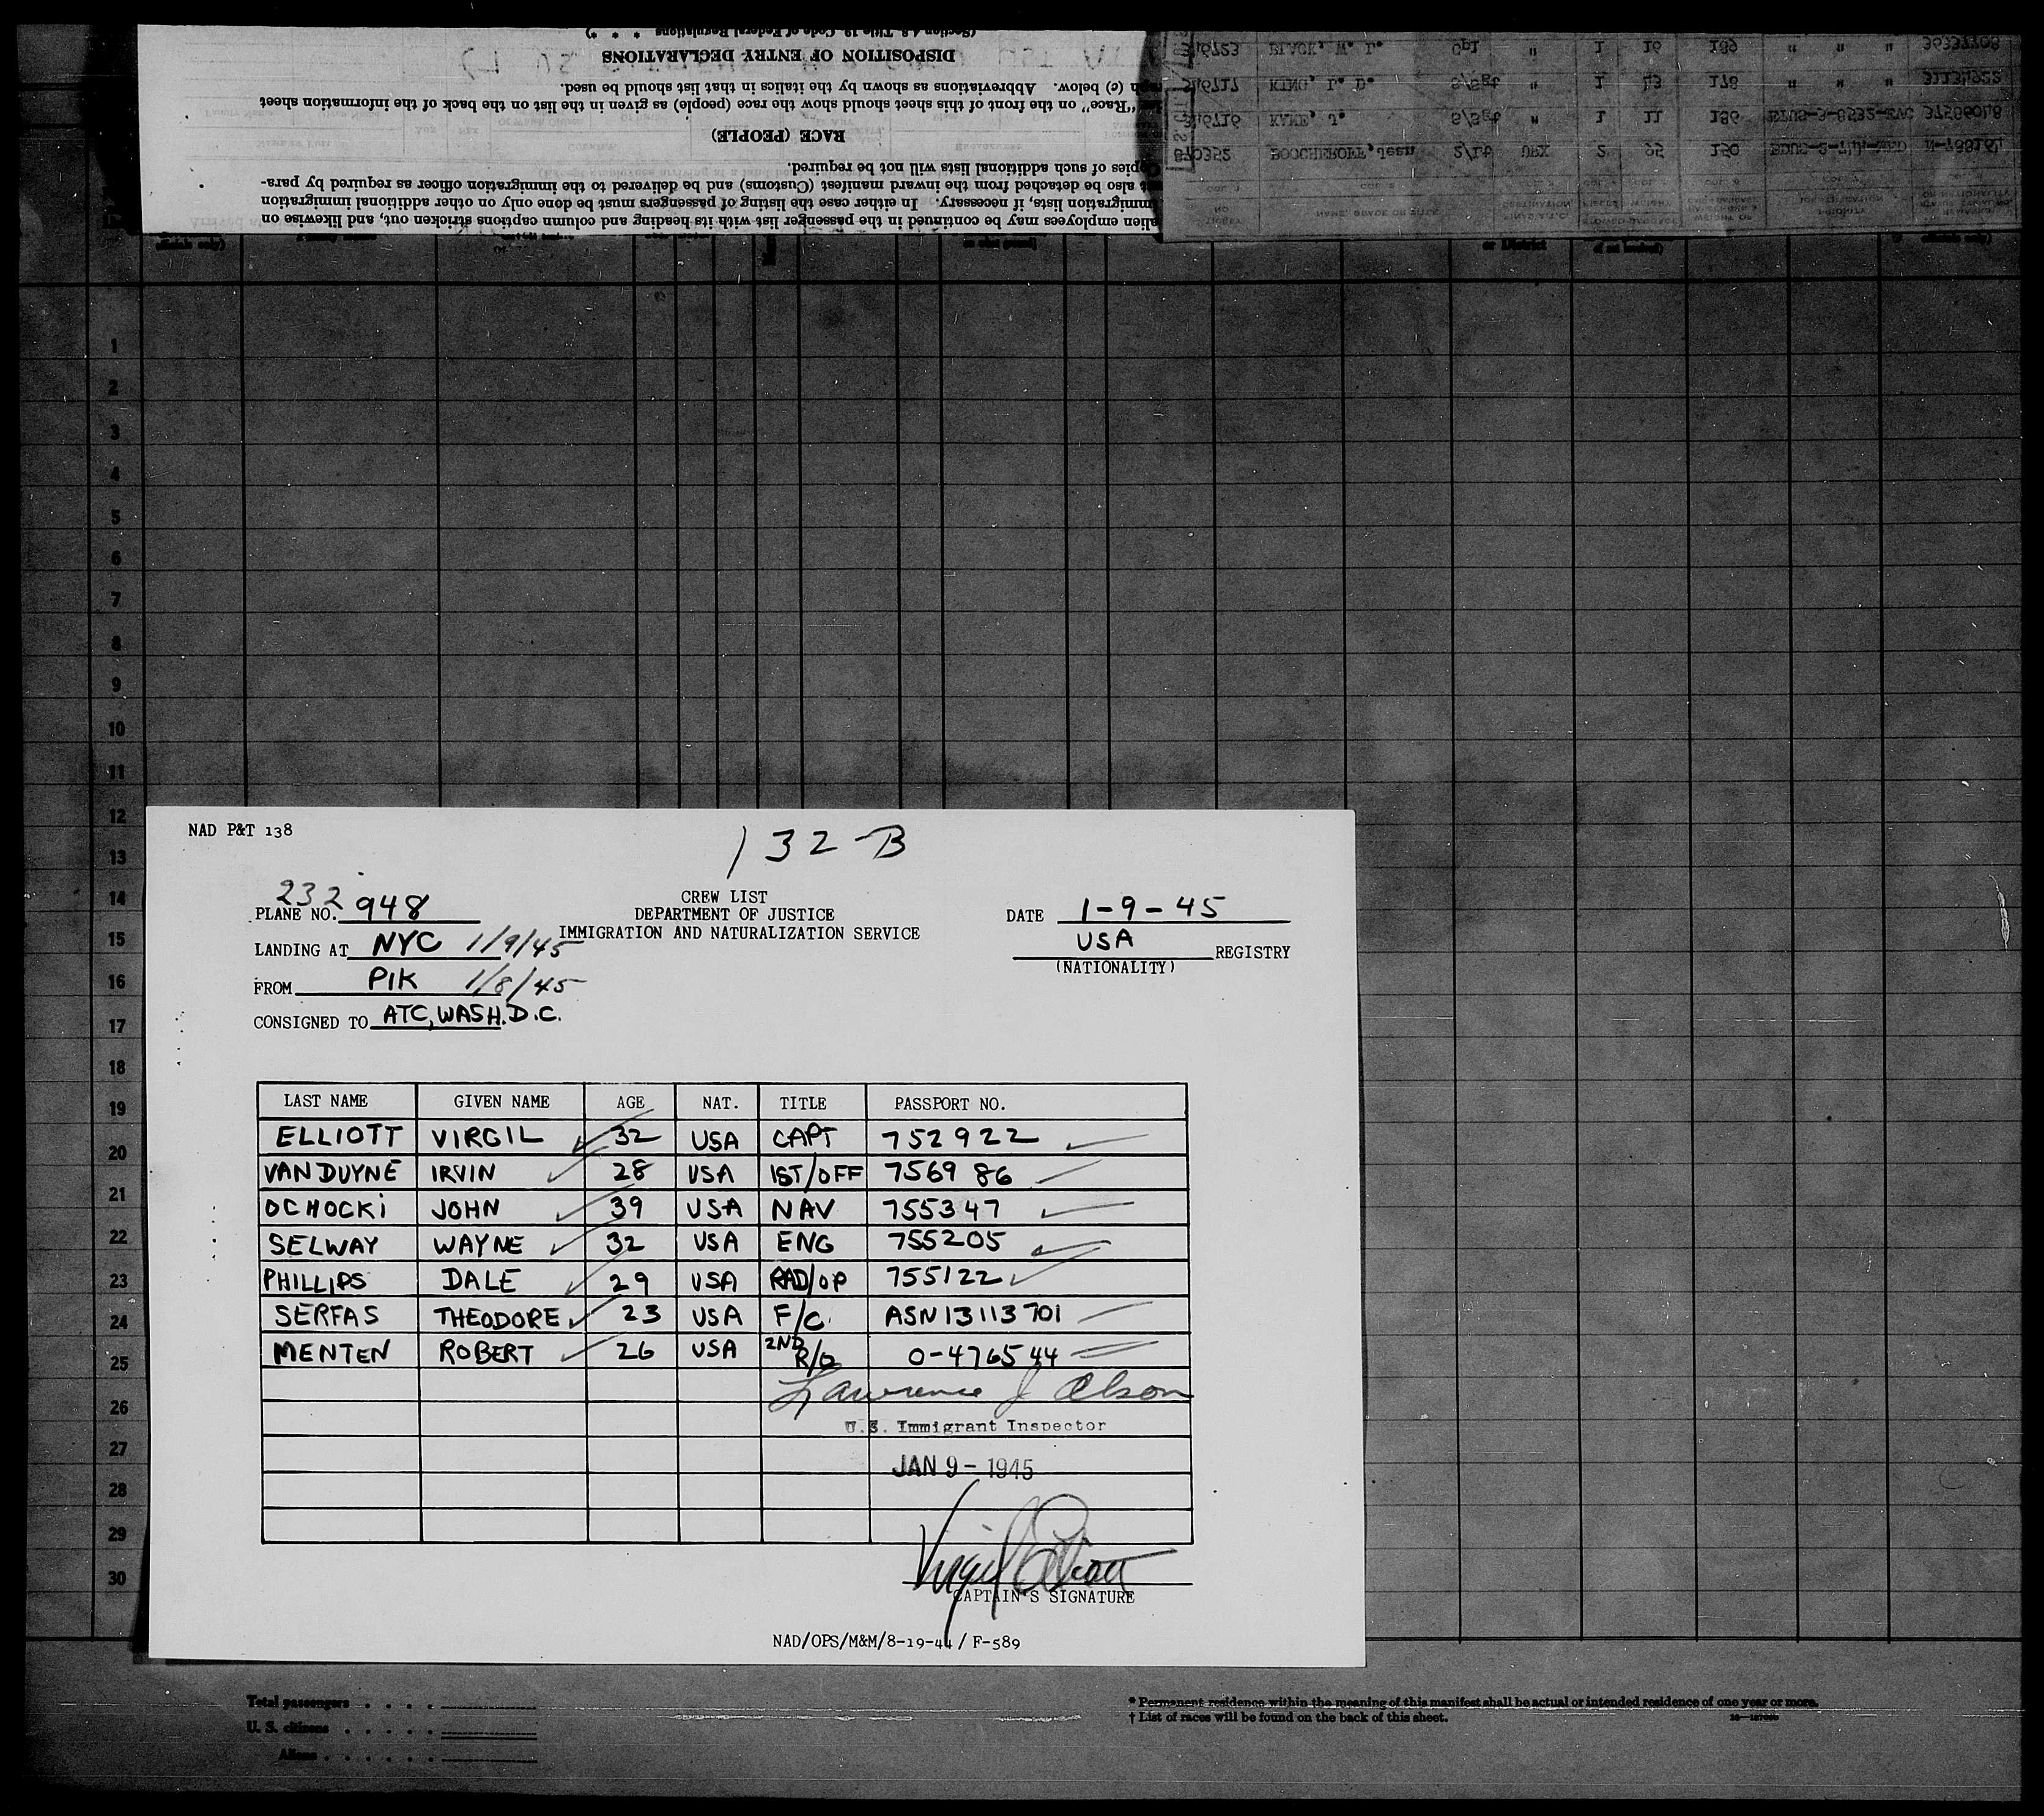 (Section 4.8, Title 19, Code of Federal Regulations * * *)
DISPOSITION OF ENTRY DECLARATIONS
(c) below. Abbreviations as shown by the italics in that list should be used.
"Race" on the front of this sheet should show the race (people) as given in the list on the back of the information sheet
RACE (PEOPLE)
Copies of such additional lists will not be required.
also be detached from the inward manifest (Customs) and be delivered to the immigration officer as required by para-
immigration lists, if necessary. In either case the listing of passengers must be done only on other additional immigration
alien employees may be continued in the passenger list with its heading and column captions stricken out, and likewise on
316723 BLACK, W. D. Cpl " 1 16 189 " " "
316717 KING, L. D. S/Sgt " 1 13 178 " " " 31134922
316716 KANE, J. S/Sgt " 1 11 186
870352 BOOCHEROFF, Jean 2/Lt 2 95 150
or District
1
2
3
4
5
6
7
8
9
10
11
12
13
14
15
16
17
18
19
20
21
22
23
24
25
26
27
28
29
30
NAD P&T 138
132-B
CREW LIST
DEPARTMENT OF JUSTICE
IMMIGRATION AND NATURALIZATION SERVICE
PLANE NO. 232948
LANDING AT NYC 1/9/45
FROM PIK 1/8/45
CONSIGNED TO ATC, WASH. D.C.
DATE 1-9-45
USA REGISTRY
(NATIONALITY)
LAST NAME GIVEN NAME AGE NAT. TITLE PASSPORT NO.
ELLIOTT VIRGIL 32 USA CAPT 752922
VAN DUYNE IRVIN 28 USA 1ST/OFF 756986
OCHOCKI JOHN 39 USA NAV 755347
SELWAY WAYNE 32 USA ENG 755205
PHILLIPS DALE 29 USA RAD/OP 755122
SERFAS THEODORE 23 USA F/C. ASN 13113701
MENTEN ROBERT 26 USA 2ND R/O 0-476544
Lawrence J Olson
U.S. Immigrant Inspector
JAN 9 - 1945
Virgil Elliott
CAPTAIN'S SIGNATURE
NAD/OPS/M&M/8-19-44/ F-589
Total passengers . . . .
U. S. citizens . . . . .
Aliens . . . . . .
* Permanent residence within the meaning of this manifest shall be actual or intended residence of one year or more.
† List of races will be found on the back of this sheet.